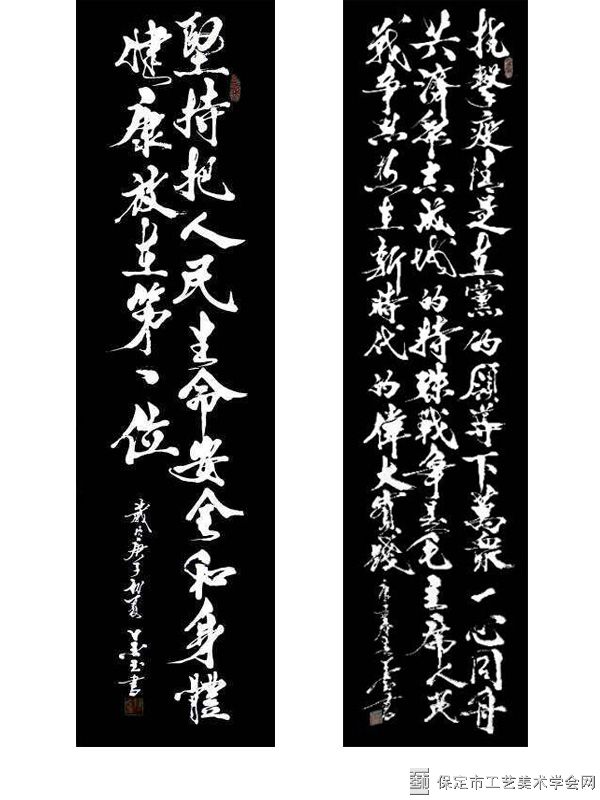 堅持把人民生命安全和身體
健康放在第一位
歲次庚子初夏
書
抗擊疫情是在黨的領導下萬衆一心同舟
共濟衆志成城的特殊戰争是毛主席人民
戰争思想在新時代的偉大實踐
保定市工艺美术学会网